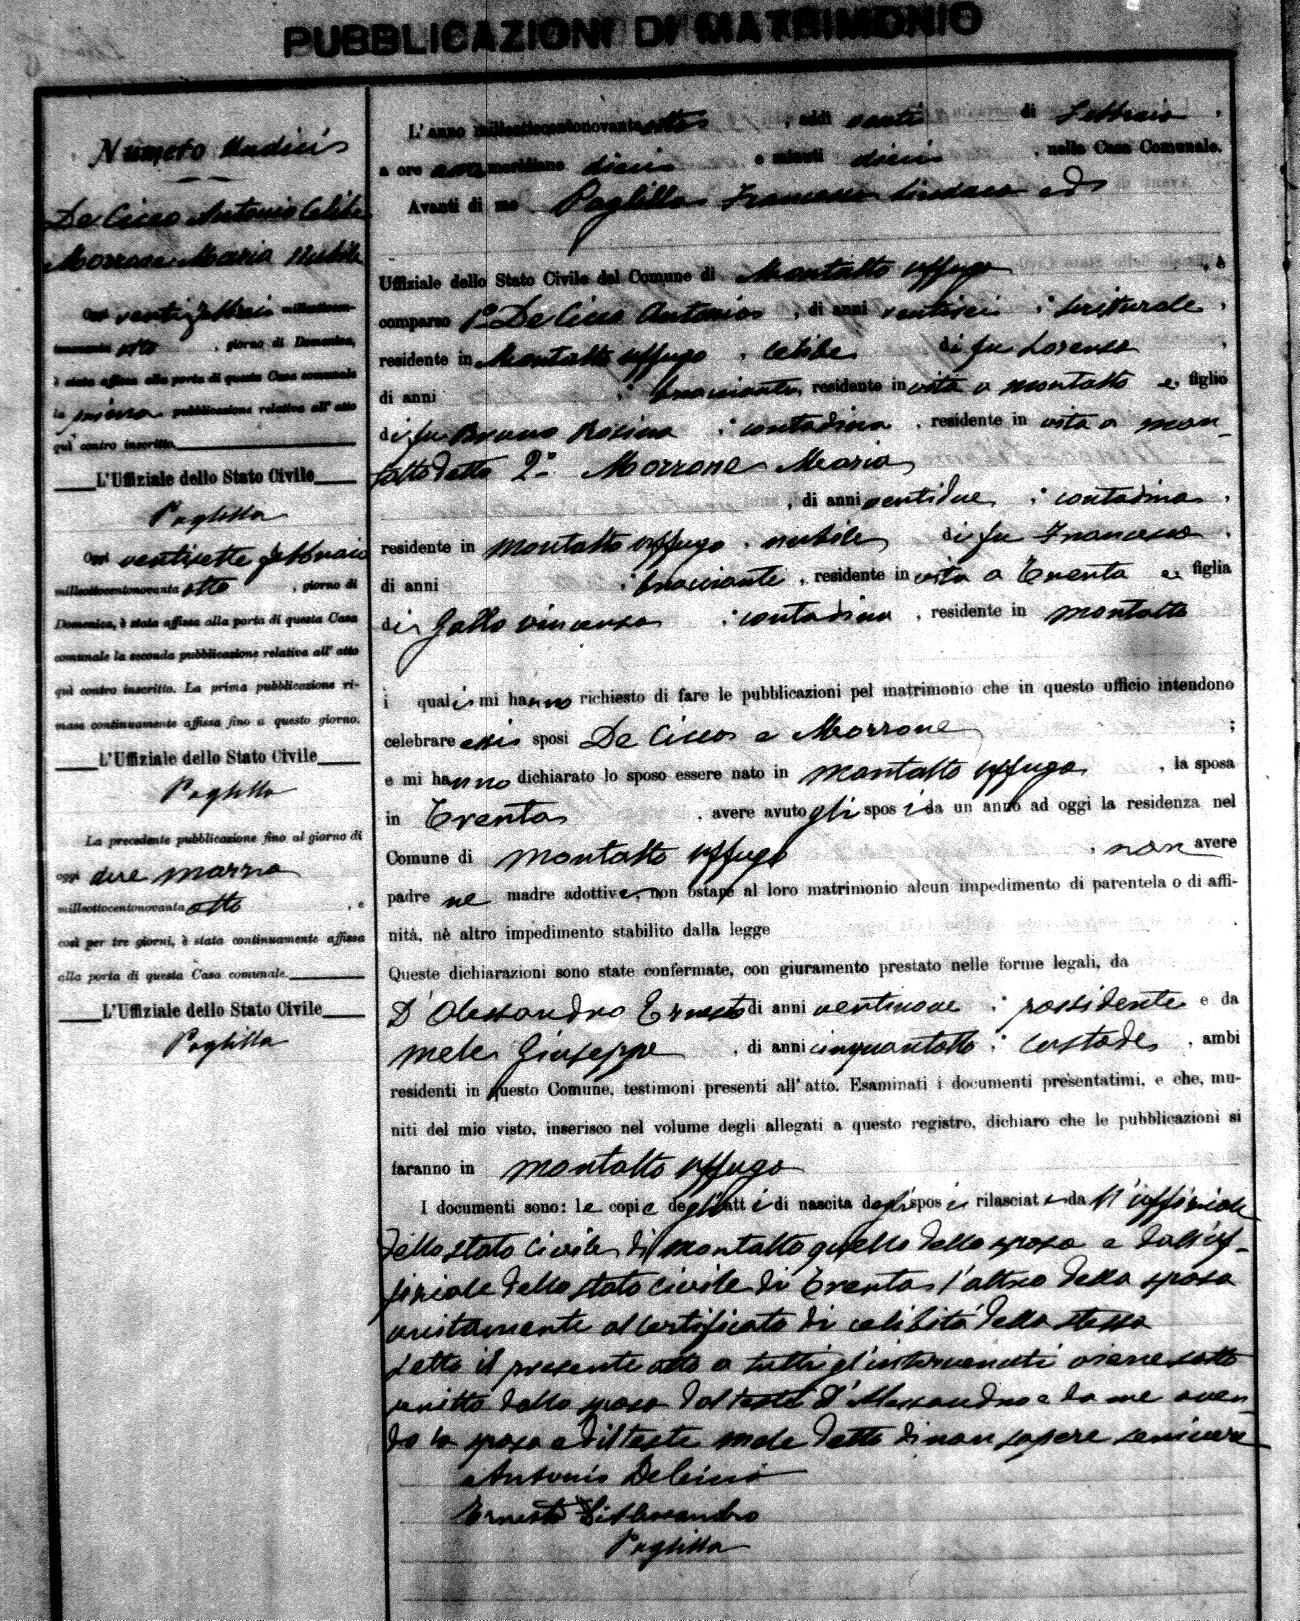 PUBBLICAZIONI DI MATRIMONIO
Numero Undici
De Cicco Antonio Celibe
Morrone Maria Nubile
Oggi venti febbraio milleottocen-
tonovanta otto, giorno di Domenica,
è stata affissa alla porta di questa Casa comunale
la prima pubblicazione relativa all'atto
quì contro inscritto
L'Uffiziale dello Stato Civile
Paglilla
Oggi ventisette febbraio
milleottocentonovanta otto, giorno di
Domenica, è stata affissa alla porta di questa Casa
comunale la seconda pubblicazione relativa all'atto
quì contro inscritto. La prima pubblicazione ri-
mase continuamente affissa fino a questo giorno.
L'Uffiziale dello Stato Civile
Paglilla
La precedente pubblicazione fino al giorno di
oggi due marzo
milleottocentonovanta otto, e
così per tre giorni, è stata continuamente affissa
alla porta di questa Casa comunale.
L'Uffiziale dello Stato Civile
Paglilla
L'anno milleottocentonovantaotto, addì venti di Febbraio,
a ore antemeridiane dieci e minuti dieci, nella Casa Comunale.
Avanti di me Paglilla Francesco Sindaco ed
Uffiziale dello Stato Civile del Comune di Montalto Uffugo, è
comparso 1º De Cicco Antonio, di anni ventisei; Scritturale,
residente in Montalto Uffugo, celibe di fu Lorenzo,
di anni ; bracciante, residente in vita a Montalto e figlio
di fu Bruno Rosina; contadina, residente in vita a Mon-
talto detto 2º Morrone Maria
, di anni ventidue; contadina,
residente in Montalto Uffugo, nubile di fu Francesco,
di anni ; bracciante, residente in vita a Trenta e figlia
di Gallo Vincenza; contadina, residente in Montalto
i quali mi hanno richiesto di fare le pubblicazioni pel matrimonio che in questo ufficio intendono
celebrare essi sposi De Cicco e Morrone;
e mi hanno dichiarato lo sposo essere nato in Montalto Uffugo, la sposa
in Trenta, avere avuto gli sposi da un anno ad oggi la residenza nel
Comune di Montalto Uffugo, non avere
padre ne madre adottivi, non ostare al loro matrimonio alcun impedimento di parentela o di affi-
nità, nè altro impedimento stabilito dalla legge
Queste dichiarazioni sono state confermate, con giuramento prestato nelle forme legali, da
D'Alessandro Ernesto di anni ventinove; possidente e da
Mele Giuseppe, di anni cinquantotto; custode, ambi
residenti in questo Comune, testimoni presenti all'atto. Esaminati i documenti presentatimi, e che, mu-
niti del mio visto, inserisco nel volume degli allegati a questo registro, dichiaro che le pubblicazioni si
faranno in Montalto Uffugo
I documenti sono: le copie degli atti di nascita degli sposi rilasciate da ll'uffiziale
dello stato Civile di Montalto quello dello sposo e dall'uf-
fiziale dello stato Civile di Trenta l'altro della sposa
unitamente al certificato di celibità della stessa
Letto il presente atto a tutti gl'intervenuti viene sotto
scritto dallo sposo dal teste D'Alessandro e da me aven-
do la sposa ed il teste Mele detto di non sapere scrivere
Antonio De Cicco
Ernesto D'Alessandro
Paglilla